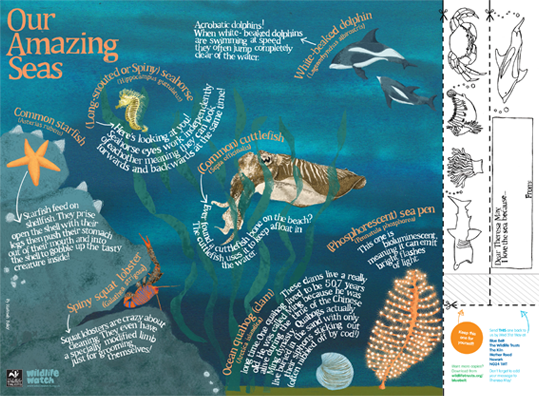 Our
Amazing
Seas
Acrobatic dolphins!
When white-beaked dolphins
are swimming at speed
they often jump completely
clear of the water.
White-beaked dolphin
(Lagenorhynchus albirostris)
(Long-snouted or Spiny) seahorse
(Hippocampus guttulatus)
Here's looking at you!
Seahorse eyes work independently
of eachother meaning they can look
forwards and backwards at the same time!
Common starfish
(Asterias rubens)
Starfish feed on
shellfish. They prise
open the shell with their
legs then push their stomach
out of their mouth and into
the shell to gobble up the tasty
creature inside!
(Common) cuttlefish
(Sepia officinalis)
Ever found a cuttlefish bone on the beach?
The cuttlefish uses it to keep afloat in
the water
(Phosphorescent) sea pen
(Pennatula phosphorea)
This one is
bioluminescent,
meaning it can emit
bright flashes
of light.
Spiny squat lobster
Squat lobsters are crazy about
cleaning. They even have
a specially modified limb
just for grooming
themselves!
Ocean quahog (clam)
(Arctica islandica)
These clams live a really
long time. One quahog lived to be 507 years
old! He was called 'Ming' because he was
alive during the time of the Chinese
Ming dynasty. Quahogs actually
live buried in the sand with only
their siphons sticking out
(often nibbled off by cod!)
wildlife
watch
Dear Theresa May,
I love the sea because...
From:
Blue Belt
The Wildlife Trusts
The Kiln
Mather Road
Newark
NG24 1WT